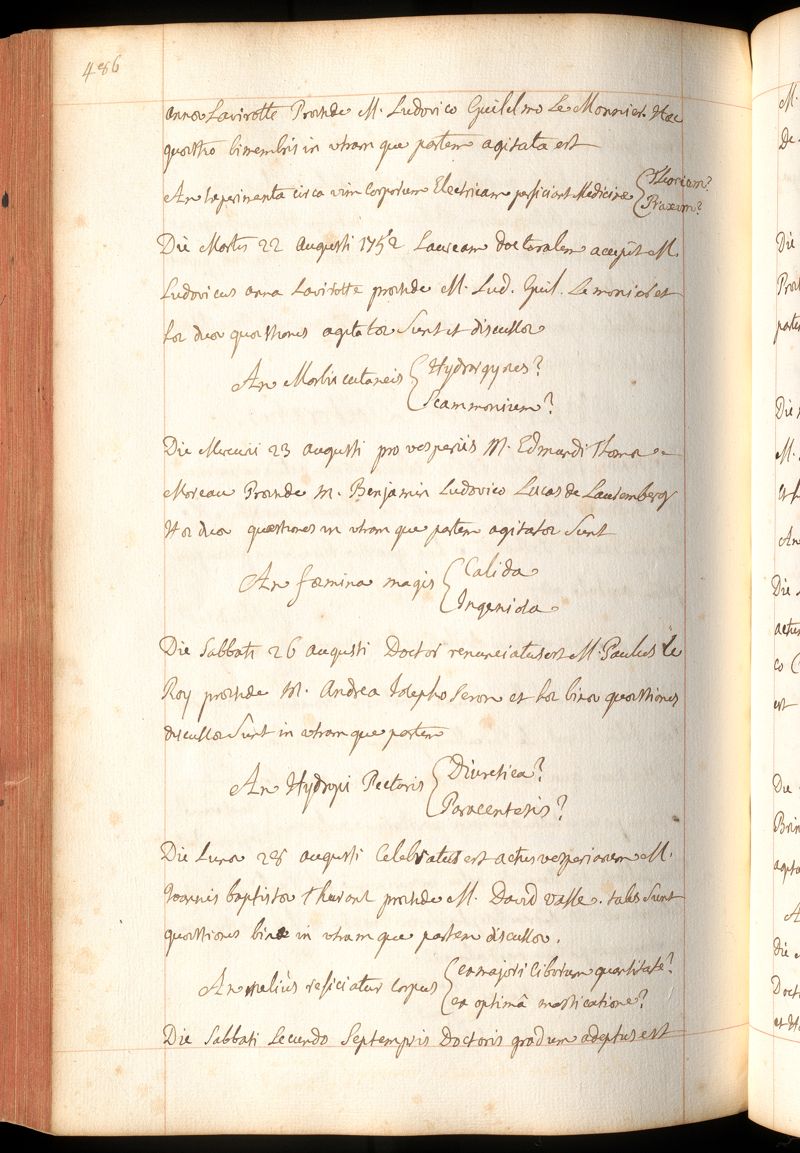 486
annæ Lavirotte Præside M. Ludovico Guilelmo Le Monnier. Hæc
quæstio bimembris in utramque partem agitata est
An Experimenta circa vim corporum Electricam perficiant Medicinæ { Theoriam?
Praxim?
Die Martis 22 augusti 1752 Lauream doctoralem accepit M.
Ludovicus anna Lavirotte præside M. Lud. Guil. Lemonier et
hæ duæ quæstiones agitatæ sunt et discussæ
An Morbis cutaneis { Hydrargyros?
Scammonium?
Die Mercurii 23 augusti pro vesperiis M. Edmundi Thomæ
Moreau Præside M. Benjamin Ludovico Lucas de Lauremberg
Hæ duæ quæstiones in utramque partem agitatæ sunt
An fæmina magis { Calida
Ingeniosa
Die Sabbati 26 augusti Doctor renunciatus est M. Paulus Le
Roy præside M. Andrea Josepho Seron et hæ binæ quæstiones
discussæ sunt in utramque partem
An Hydropi Pectoris { Diuretica?
Paracentesis?
Die Lunæ 28 augusti Celebratus est actus vesperiarum M.
Joannis baptistæ Thurant præside M. David Vasse. tales sunt
quæstiones binæ in utramque partem discussæ.
An meliùs reficiatur corpus { ex majori ciborum quantitate?
ex optimâ masticatione?
Die Sabbati secundo Septempris Doctoris gradum adeptus est